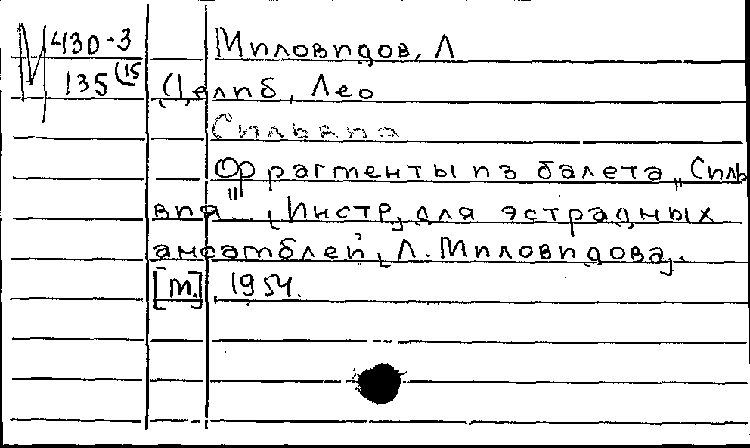 М 430-3 Миловидов, Л
135 (15 Делиб, Лео
Сильвия
Фрагменты из балета „Силь
вия". [Инстр.] для эстрадных
ансамблей, [Л. Миловидова].
[М.], 1954.